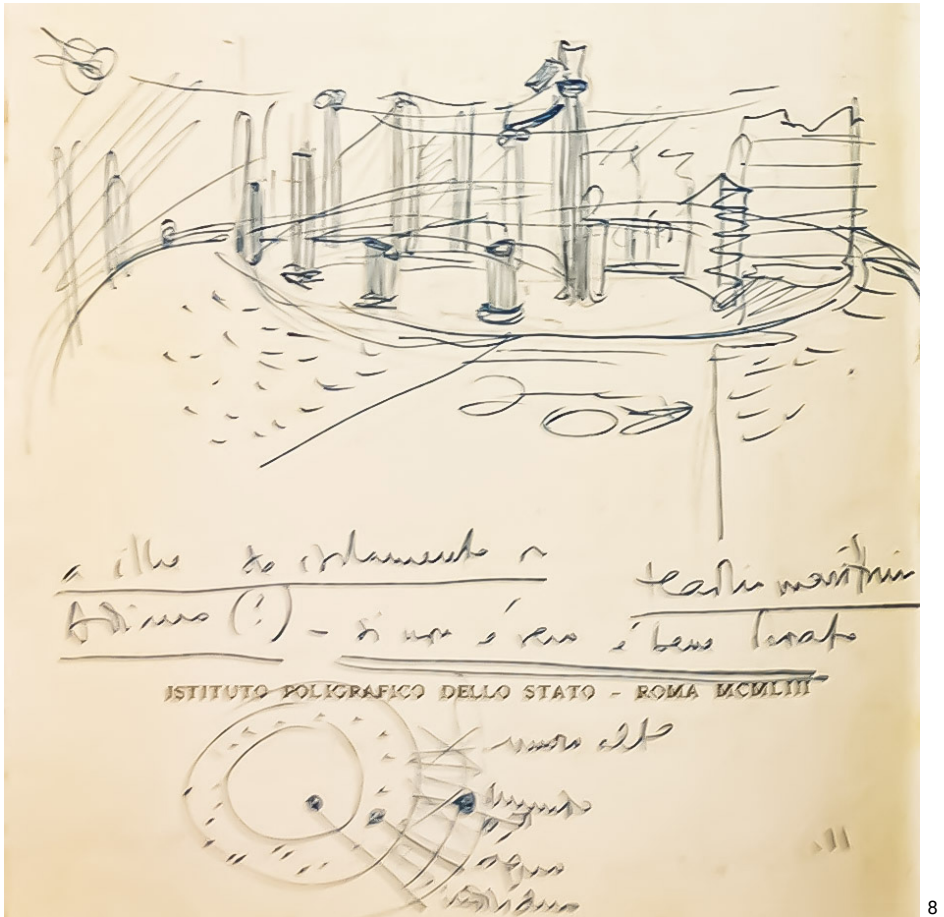 a ilha do isolamento
teatro marítimo
Adriano (?) - si non é vero é bene trovato
ISTITUTO POLIGRAFICO DELLO STATO - ROMA MCMLIII
muro alto
agua
8